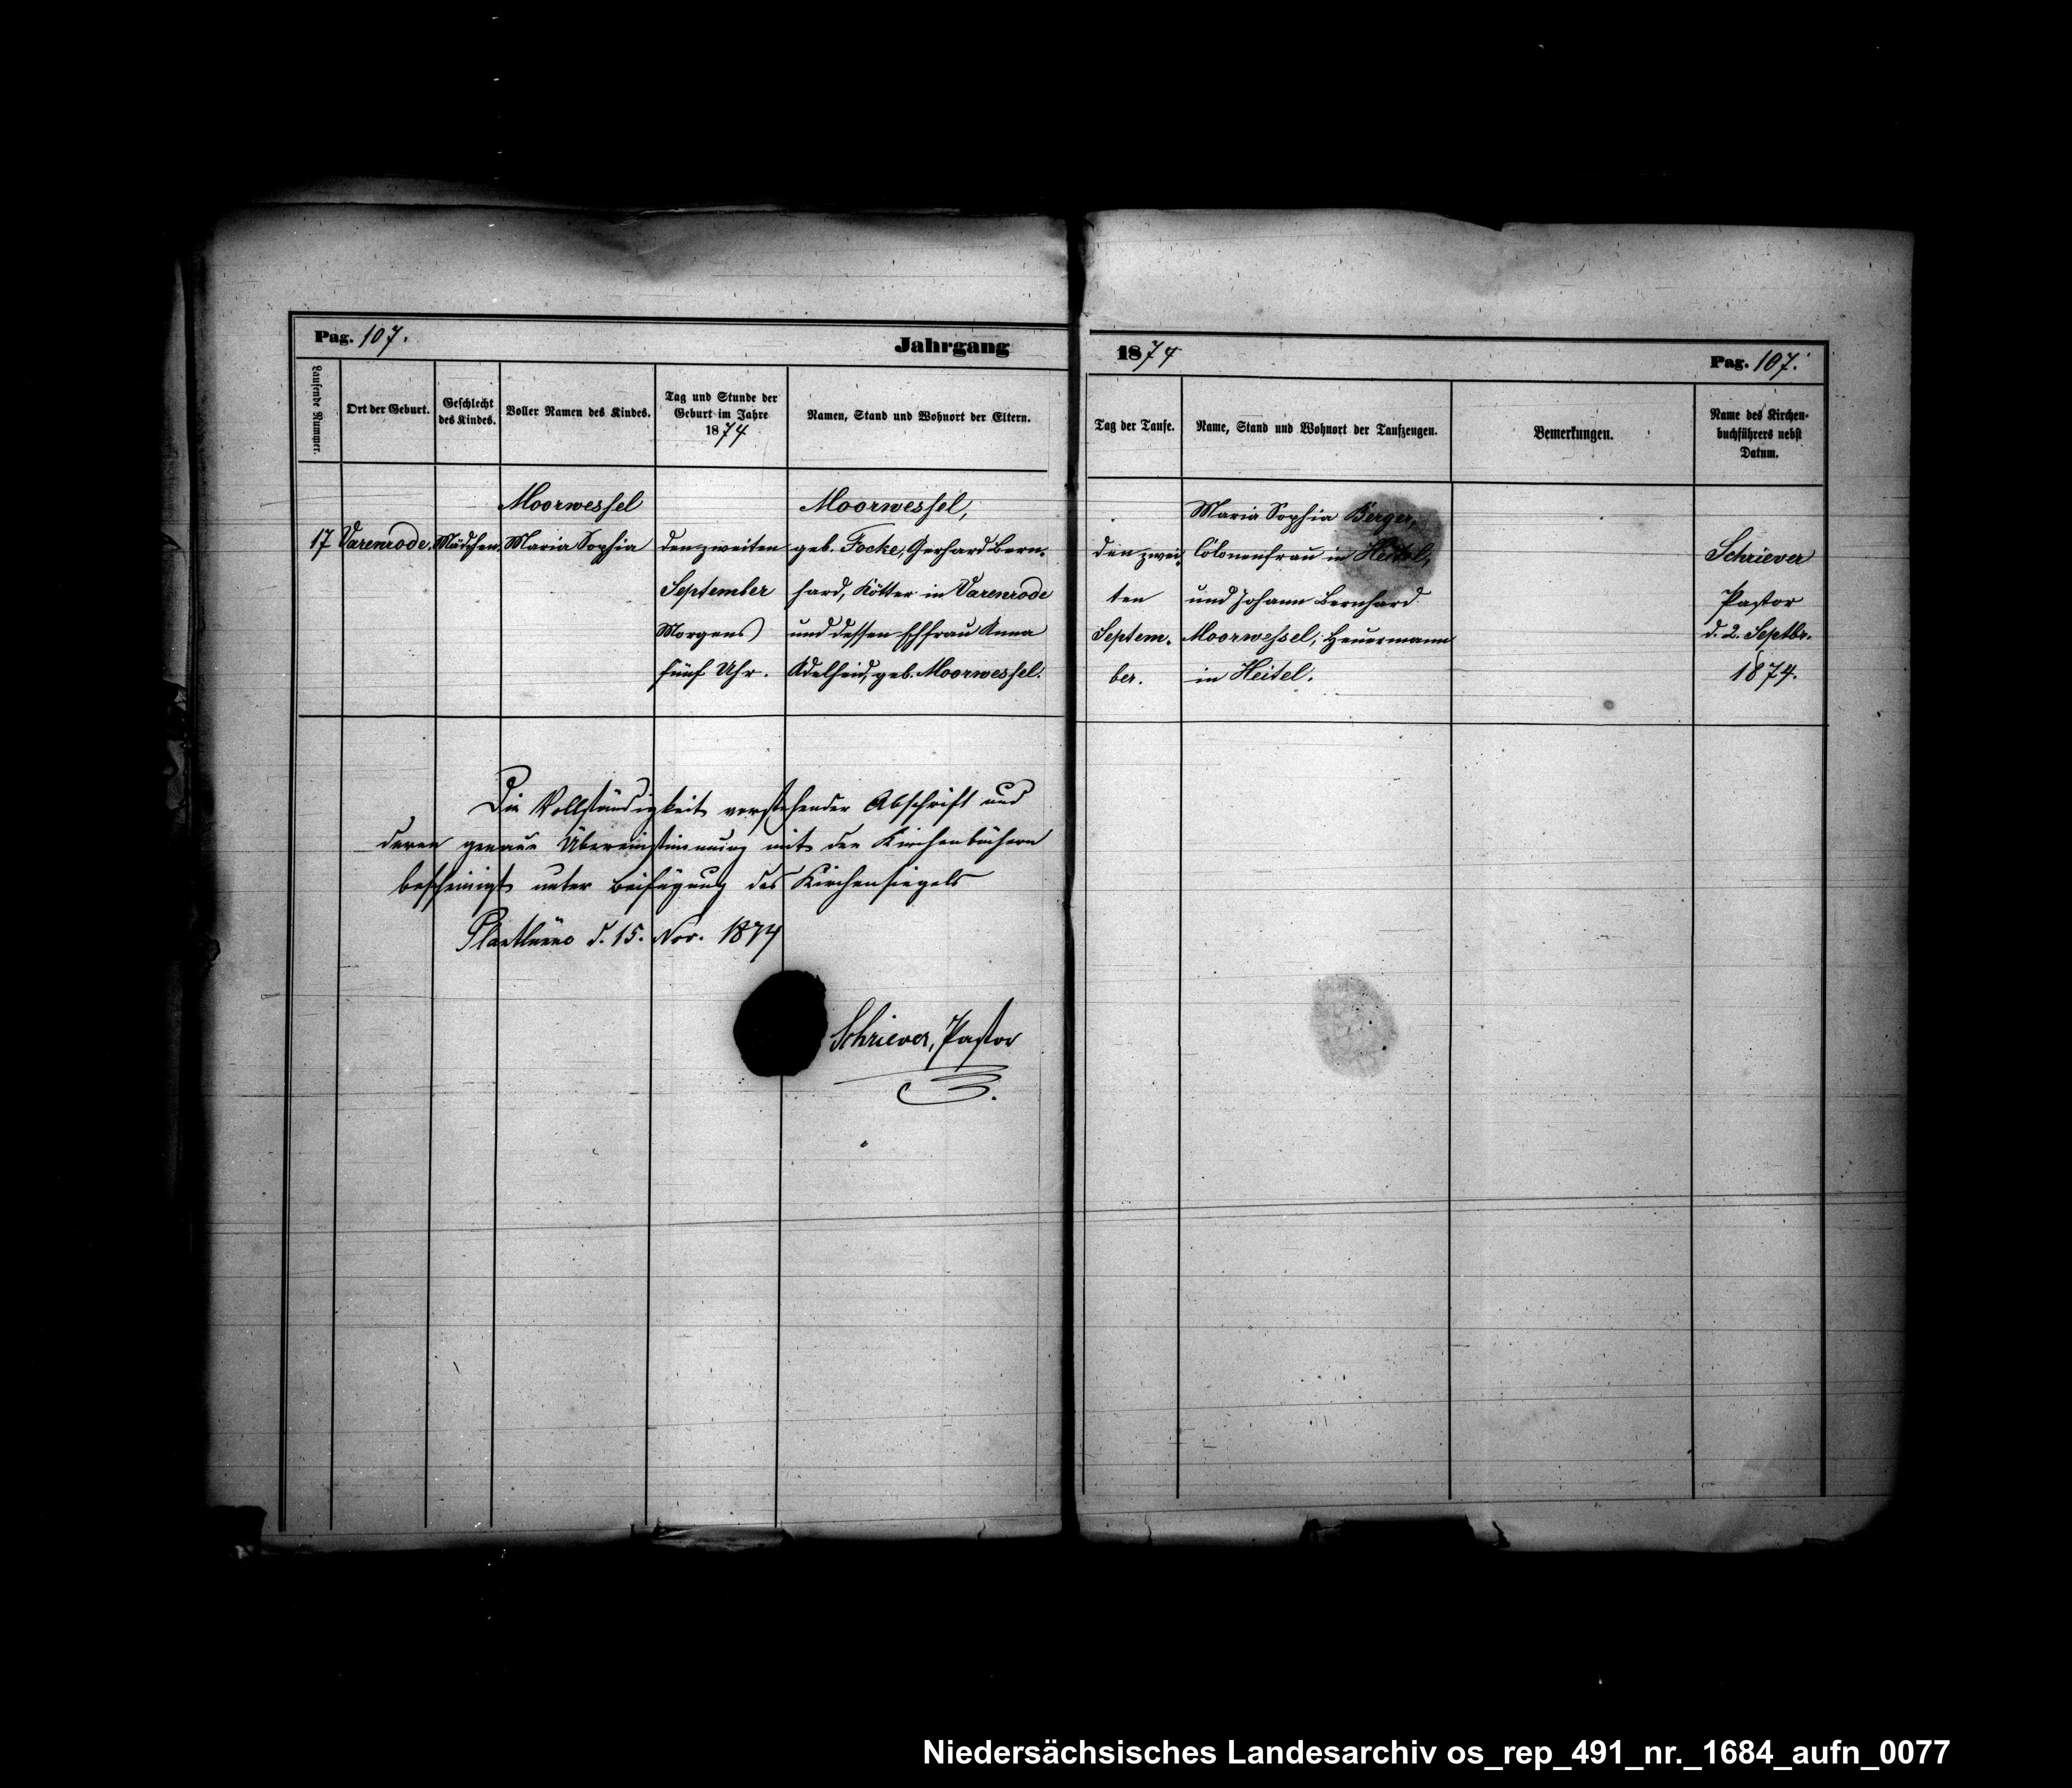 Pag. 107.
Jahrgang
1874
Pag. 107.
Laufende Nummer.
Ort der Geburt.
Geschlecht
des Kindes.
Voller Namen des Kindes.
Tag und Stunde der
Geburt im Jahre
1874
Namen, Stand und Wohnort der Eltern.
Tag der Taufe.
Name, Stand und Wohnort der Taufzeugen.
Bemerkungen.
Name des Kirchen-
buchführers nebst
Datum.
17
Varenrode.
Mädchen.
Moorwessel
Maria Sophia
den zweiten
September
Morgens
fünf Uhr.
Moorwessel,
geb. Focke, Gerhard Bern-
hard, Kötter in Varenrode
und dessen Ehfrau Anna
Adelheid, geb. Moorwessel.
den zwei-
ten
Septem-
ber.
Maria Sophia Berger,
Colonenfrau in Heitel,
und Johann Bernhard
Moorwessel, Heuermann
in Heitel.
Schriever
Pastor
d. 2. Septbr.
1874.
Die Vollständigkeit vorstehender Abschrift und
deren genaue Übereinstimmung mit den Kirchenbüchern
bescheinigt unter Beifügung des Kirchensiegels
Plantlünne d. 15. Nov. 1874
Schriever, Pastor
Niedersächsisches Landesarchiv os_rep_491_nr._1684_aufn_0077